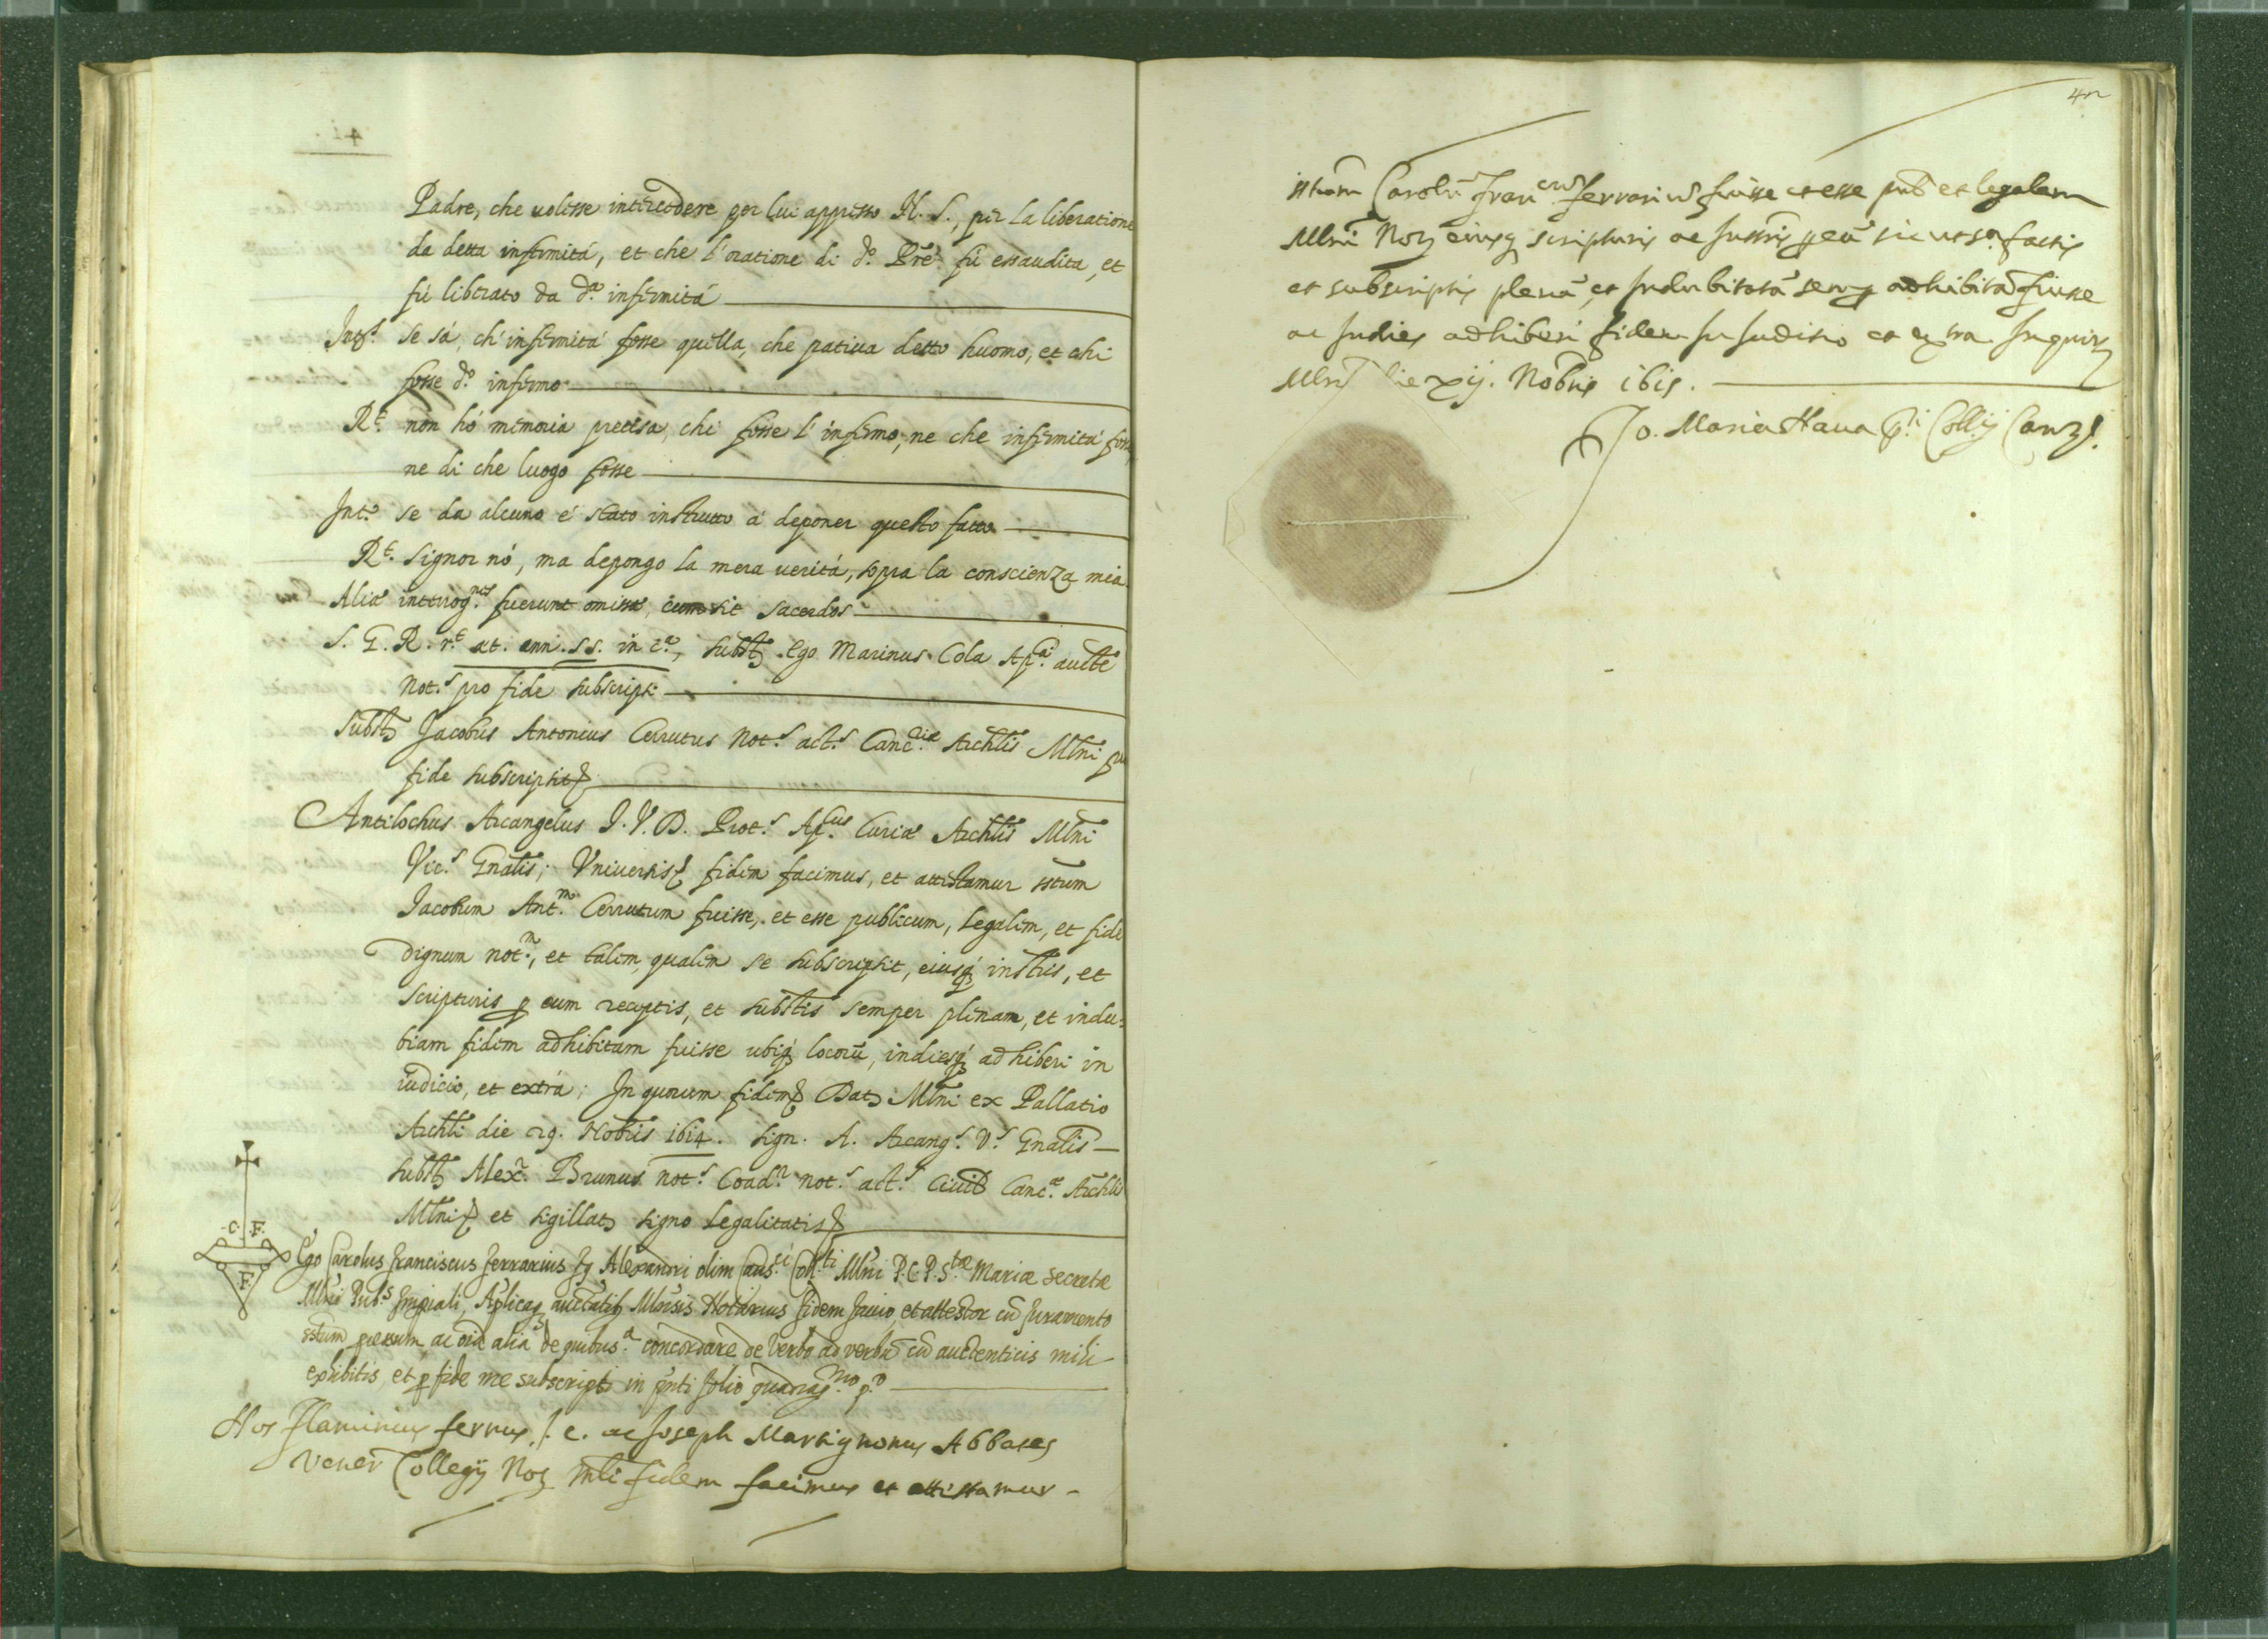 Padre, che uolesse intercedere per lui appresso N. S., per la liberatione
da detta infermità, et che l'oratione di d.º Prē fù essaudita, et
fù liberato da d.ª infermità
Int.º se sà, ch' infermità fosse quella, che patiua detto huomo, et chi
fosse d.º infermo
R.t non hò memoria precisa, chi fosse l'infermo, ne che infermità fosse
ne di che luogo fosse
Int.º se da alcuno è stato instrutto à deponer questo fatto
R.t Signor nò, ma depongo la mera uerità, sopra la conscienza mia
Aliæ interrog.nes fuerunt omissæ, cum sit sacerdos
S. G. R. r.t æt. ann. 55. in c.ª, subst. Ego Marinus Cola Ap.ca aucte
Not.s pro fide subscripsi
Subst. Jacobus Antonius Cerrutus Not.s act.s Canc.riæ Archlis Mlni pro
fide subscripsit
Antilochus Arcangelus J. V. D. Prot.s Ap.cus Curiæ Archlis Mlni
Vic.s Gnalis; Vniuersis fidem facimus, et attestamur sstum
Jacobum Ant.m Cerrutum fuisse, et esse publicum, legalem, et fide
dignum not.m, et talem, qualem se subscripsit, eiusq; instris, et
scripturis p eum receptis, et substis semper plenam, et indu:
biam fidem adhibitam fuisse ubiq; locorū, indiesq; adhiberi in
iudicio, et extrà; In quorum fidem Dat; Mlni ex Pallatio
Archli die 29. Nobris 1614. sign. A. Arcang.s V.s Gnalis
subst. Alex.r Brunus not.s Coad.r not.s act.s Ciuil Canc.æ Archlis
Mlni et sigillat; signo legalitatis
.C. .F.
.F.
Ego Carolus Franciscus Ferrarius fq Alexandri olim Caus.ci Coll.ti Mlni P.C.P.S.tæ Mariæ Secretæ
Mlni Pub.s Imperiali, Aplicaq; auctatib; Mlnsis Notarius fidem facio, et attestor cū juramento
sstum processum, ac oīa alia de quibus s.ª concordare de Verbo ad verbū cū auctenticis mihi
exhibitis, et p fide me subscripsi in pn̄ti folio quadrag.mo p.º
Nos Flaminius ferrus J. C. ac Joseph Martignonus Abbates
Vener. Collegij Not; Mlni fidem facimus et attestamur
42
sstum Carolū Fran.cum ferrariū fuisse et esse pub. et legalem
Mlni Not; eiusq; scripturis ac Instris p eū sic ut s.ª factis
et subscriptis plenā et indubitatā semp adhibitā fuisse
ac Indies adhiberi fidem in Juditio et extra. In quor;
Mlni die xij. Nobris 1615.
Jo. Maria Haua p.ti Collij Canz.s